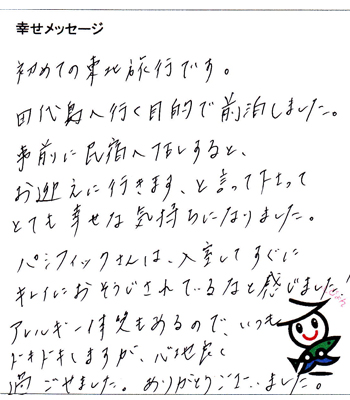 幸せメッセージ
初めての東北旅行です。
田代島へ行く目的で前泊しました。
事前に民宿へTELすると、
お迎えに行きます、と言って下さって
とても幸せな気持ちになりました。
パシフィックさんは、入室してすぐに
キレイにおそうじされているなと感じました!
アレルギー体質もあるので、いつも
ドキドキしますが、心地良く
過ごせました。ありがとうございました。